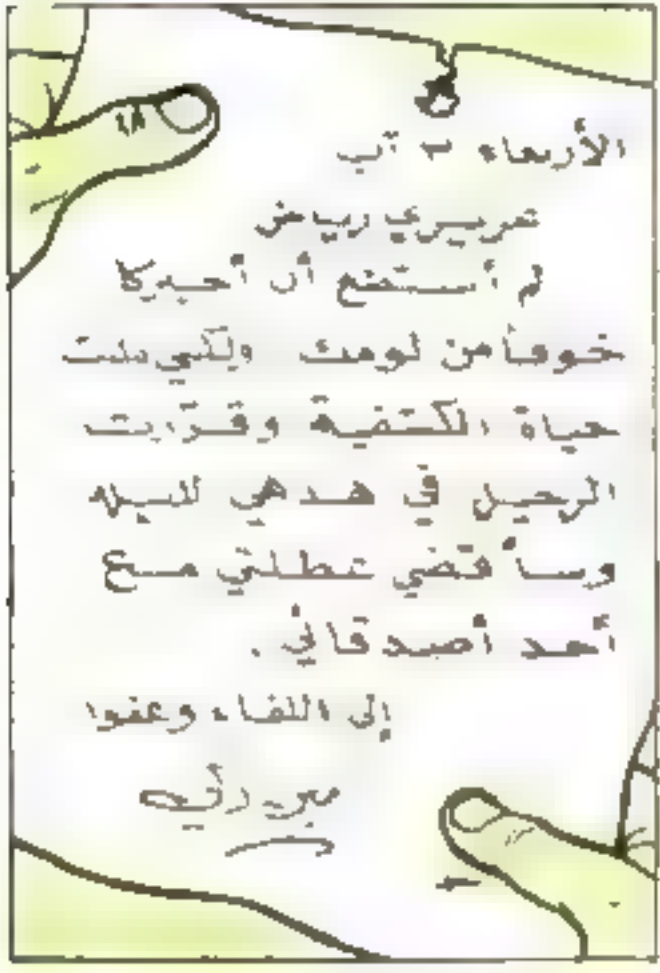 الأربعاء ٣ آب
عزيزي رياض
لم أستطع أن أخبركا
خوفاً من لومك ولكني مللت
حياة الكشفية وقررت
الرحيل في هذهي الليلة
وسأقضي عطلتي مع
أحد أصدقائي .
إلى اللقاء وعفوا